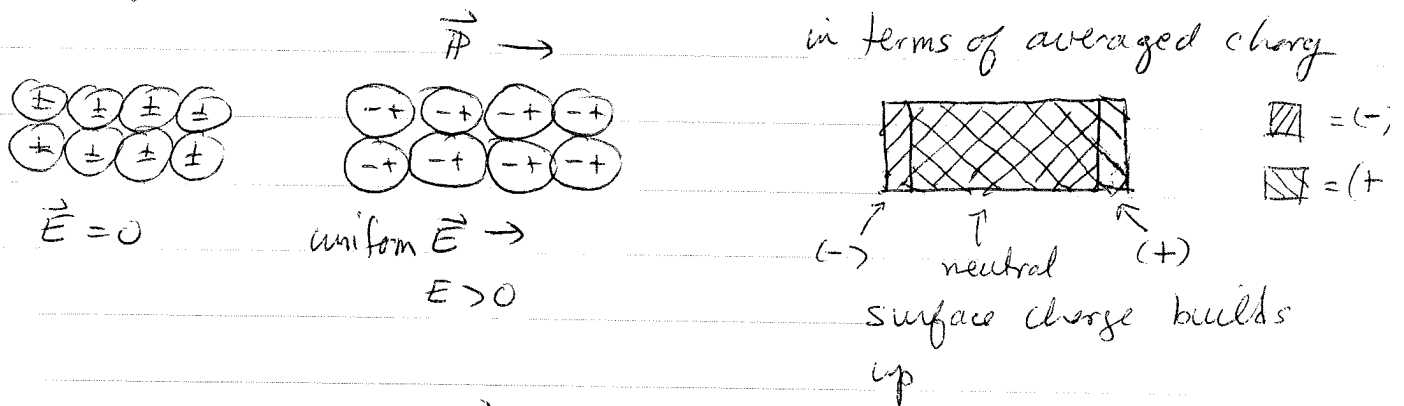 P⃗ →
in terms of averaged charg
± ± ± ±
± ± ± ±
-+ -+ -+ -+
-+ -+ -+ -+
= (-)
= (+
E⃗ = 0
uniform E⃗ →
E > 0
(-)
neutral
(+)
surface charge builds
up